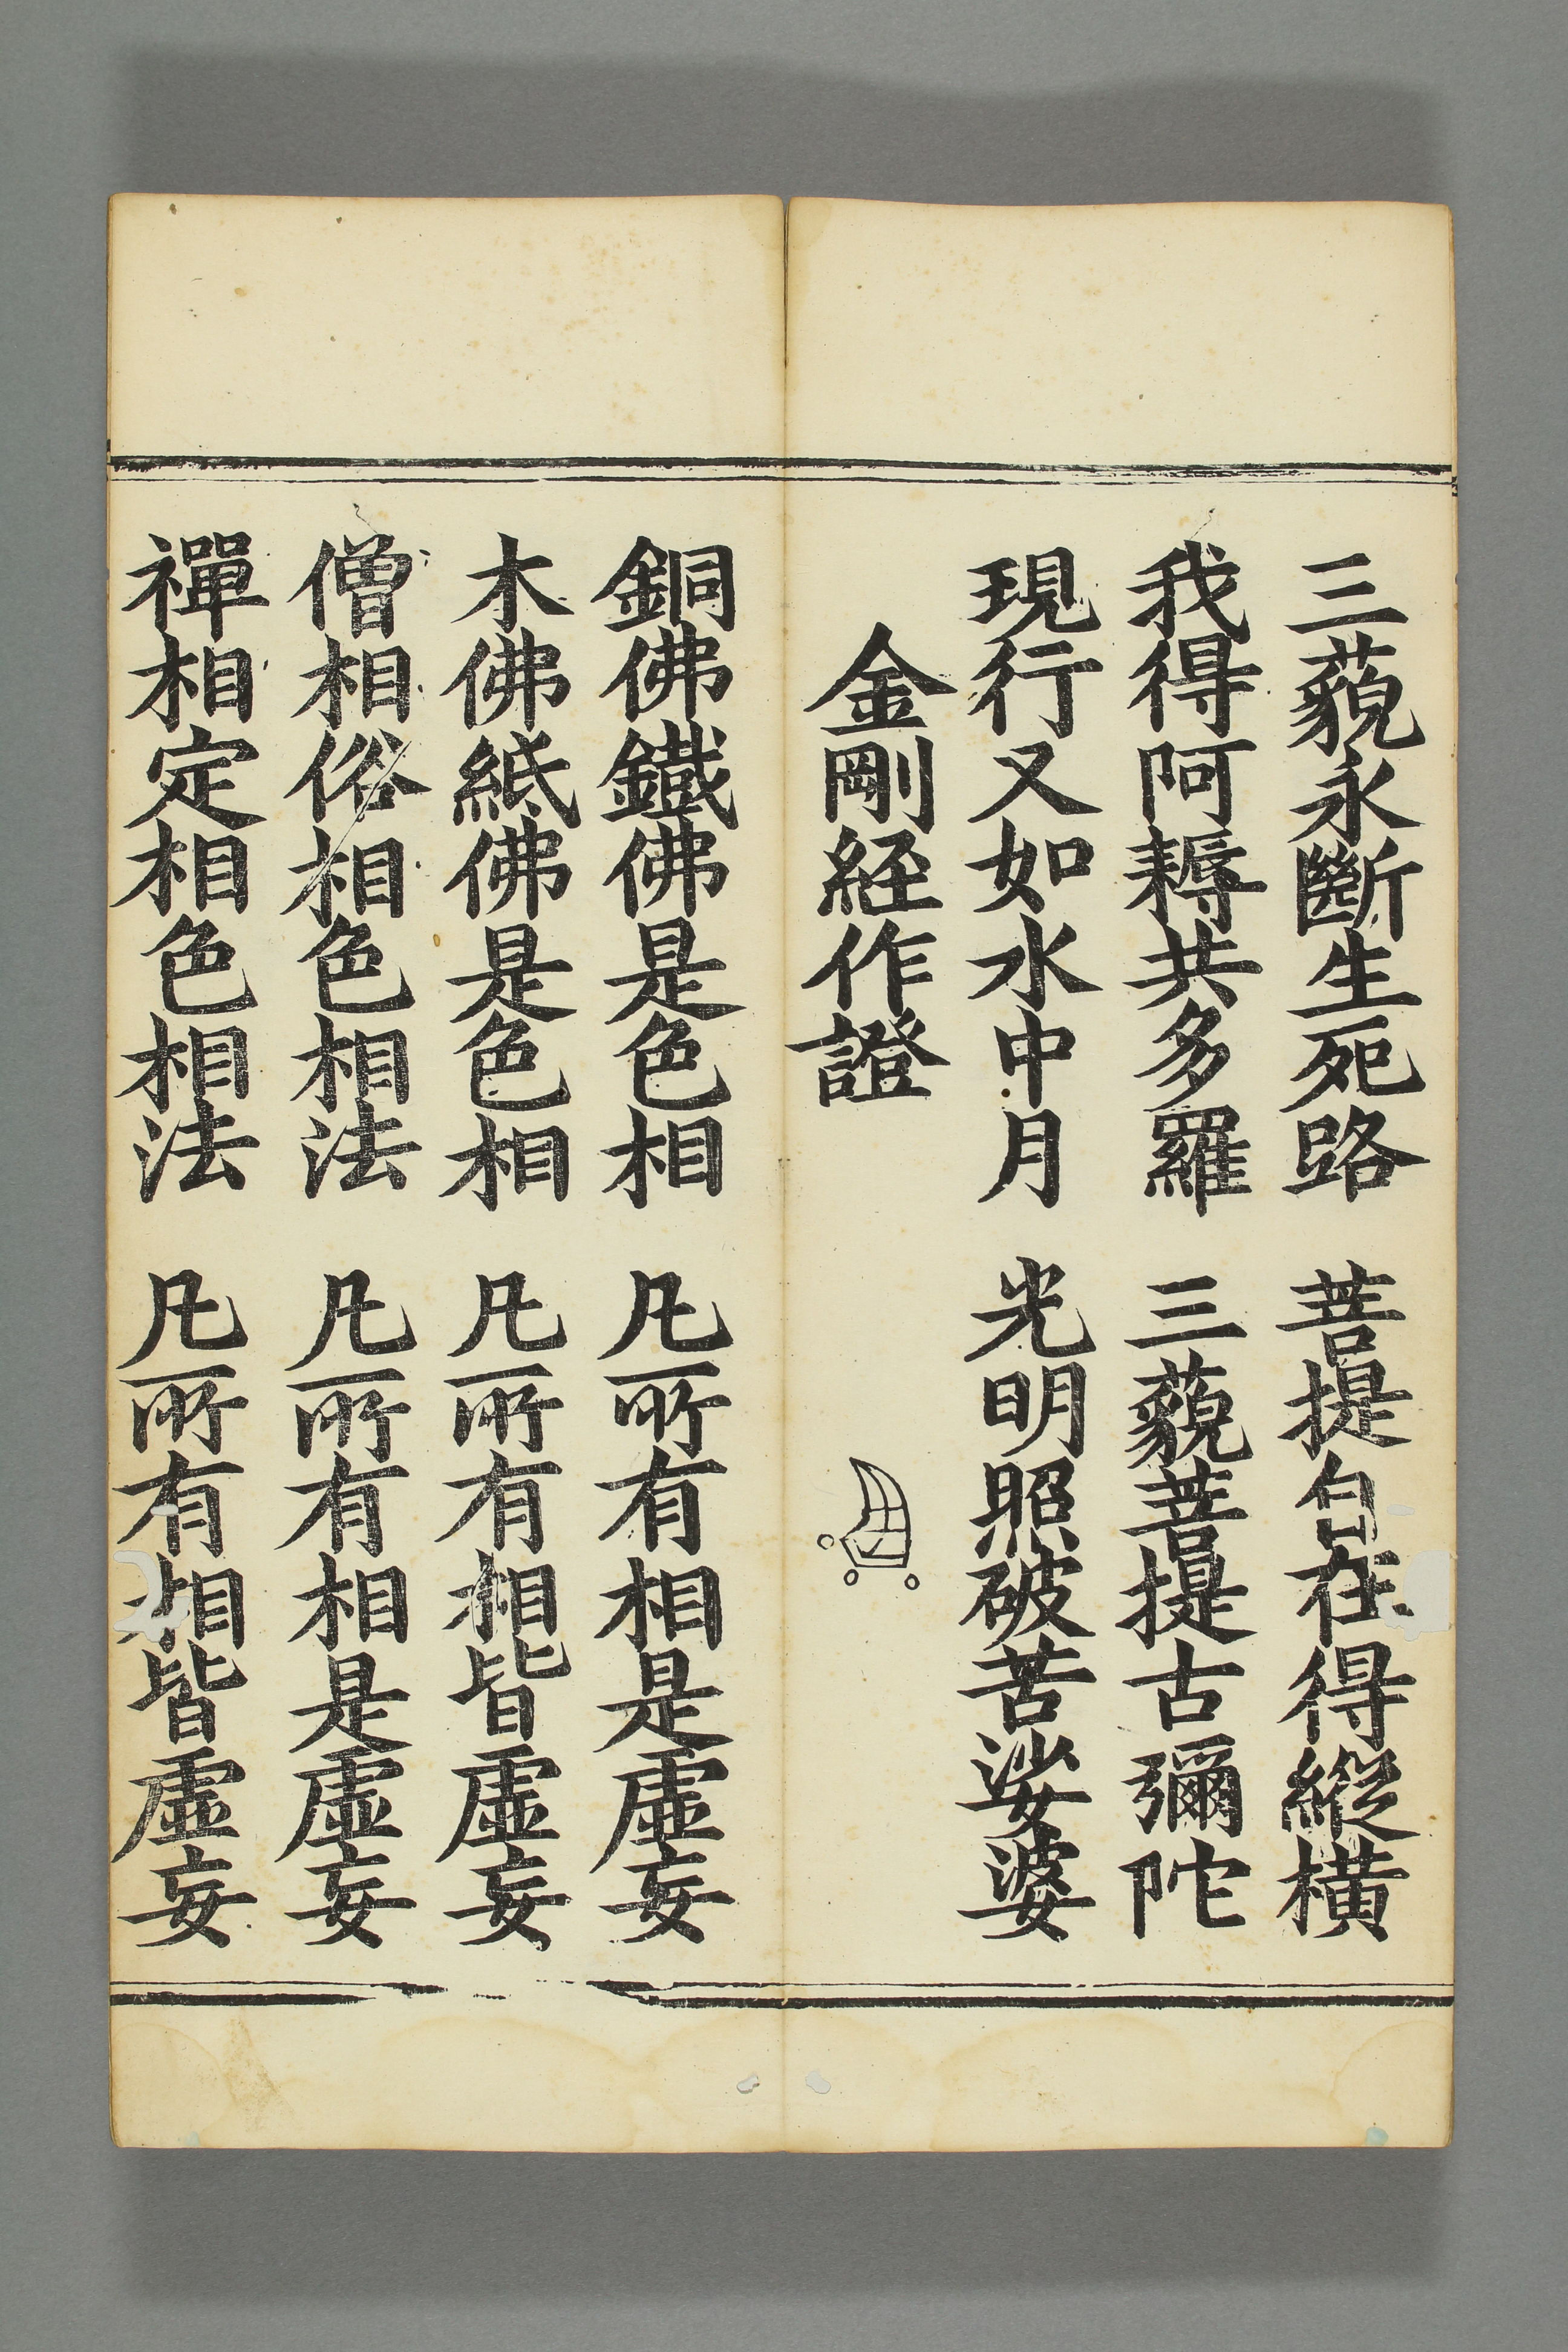 三藐永斷生死路　菩提自在得縱橫
我得阿耨共多羅　三藐菩提古彌陀
現行又如水中月　光明照破苦娑婆
金剛経作證
銅佛鐵佛是色相　凡所有相是虛妄
木佛紙佛是色相　凡所有相皆虛妄
僧相俗相色相法　凡所有相是虛妄
禪相定相色相法　凡所有相皆虛妄